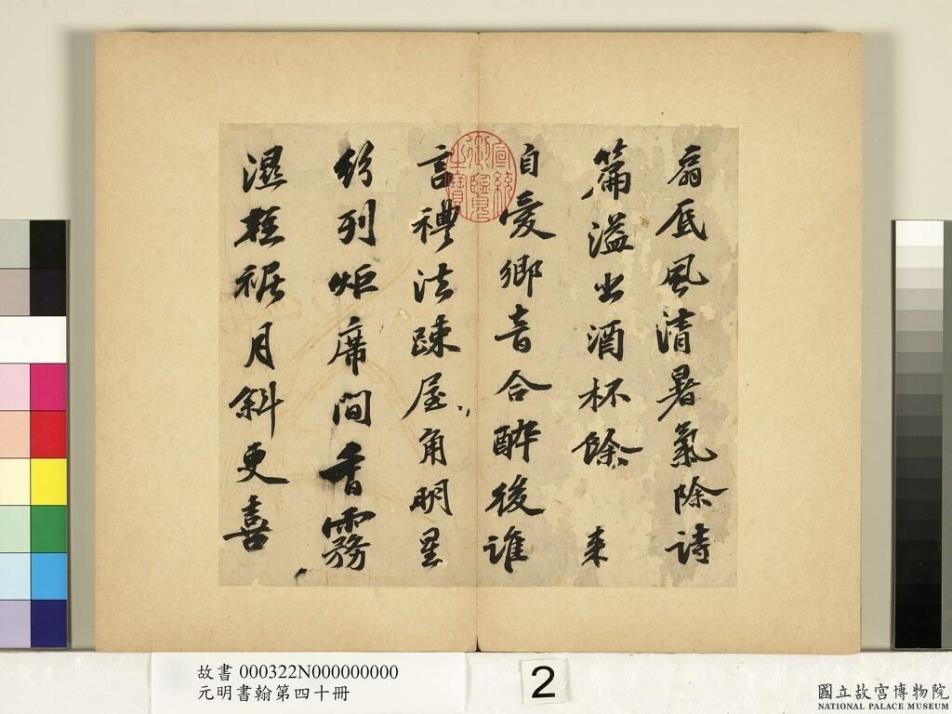 扇底風清暑氣除詩
篇溢出酒杯餘来
自愛鄉音合醉後誰
言禮法踈屋角明星
紛列炬席間香霧
濕裾月斜更喜
宣統
御覽
之寶
故書 000322N000000000
元明書翰第四十冊
2
國立故宮博物院
NATIONAL PALACE MUSEUM